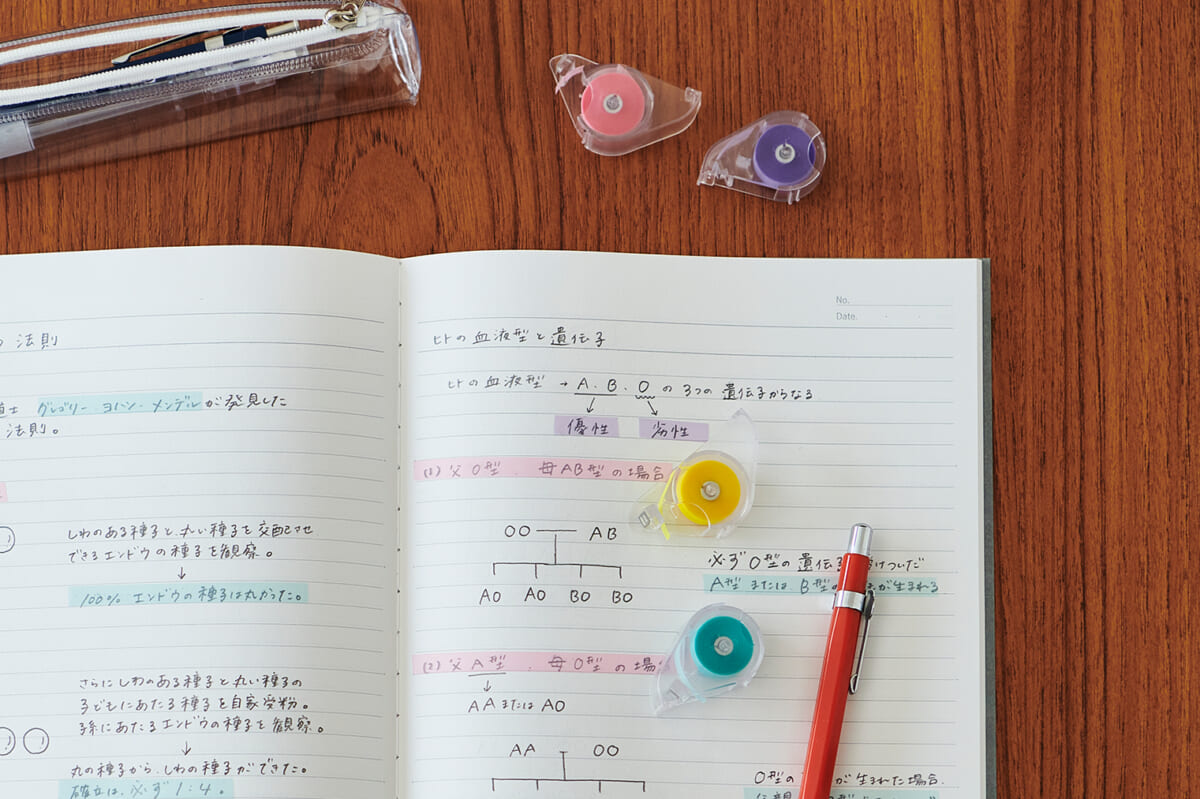 法則
グレゴリー ヨハン・メンデルが発見した
法則。
しわのある種子と、丸い種子を交配させ
できるエンドウの種子を観察。
↓
100% エンドウの種子は丸かった。
さらにしわのある種子と丸い種子の
子どもにあたる種子を自家受粉。
孫にあたるエンドウの種子を観察。
↓
丸の種子から、しわの種子ができた。
確立は、必ず1:4。
No.
Date.
ヒトの血液型と遺伝子
ヒトの血液型 → A.B.Oの3つの遺伝子からなる
優性 劣性
(1) 父O型、母AB型の場合
OO AB
AO AO BO BO
必ずO型の遺伝子 けついだ
A型またはB型の が生まれる
(2) 父A型、母O型の場
↓
AAまたはAO
AA OO
O型の が生まれた場合、